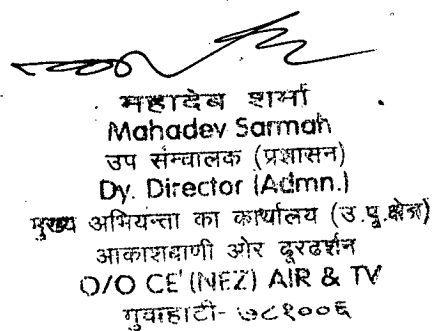 महादेब शर्मा
Mahadev Sarmah
उप संम्चालक (प्रशासन)
Dy. Director (Admn.)
मुख्य अभियन्ता का कार्यालय (उ.पू.क्षेत्र)
आकाशबाणी ओर दूरदर्शन
O/O CE (NEZ) AIR & TV
गुवाहाटी- ७८१००६